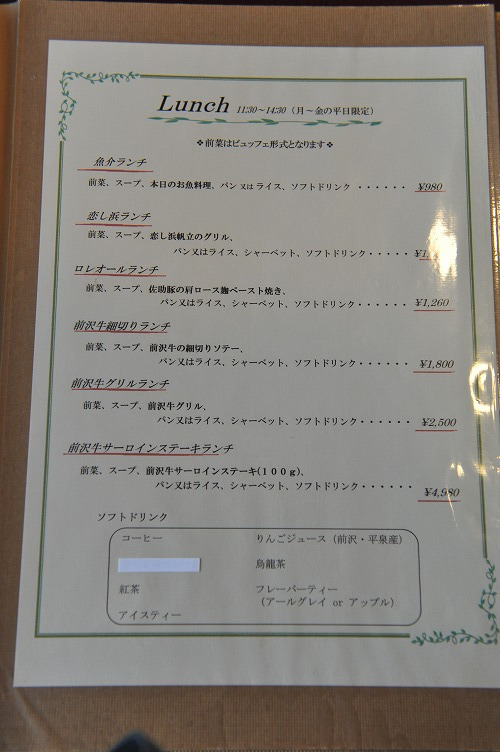 Lunch 11:30~14:30（月～金の平日限定）
❖前菜はビュッフェ形式となります❖
魚介ランチ
前菜、スープ、本日のお魚料理、パン又はライス、ソフトドリンク・・・・・・ ¥980
恋し浜ランチ
前菜、スープ、恋し浜帆立のグリル、
パン又はライス、シャーベット、ソフトドリンク・・・・・
ロレオールランチ
前菜、スープ、佐助豚の肩ロース麹ペースト焼き、
パン又はライス、シャーベット、ソフトドリンク・・・・・・ ¥1,260
前沢牛細切りランチ
前菜、スープ、前沢牛の細切りソテー、
パン又はライス、シャーベット、ソフトドリンク・・・・・・ ¥1,800
前沢牛グリルランチ
前菜、スープ、前沢牛グリル、
パン又はライス、シャーベット、ソフトドリンク・・・・・・ ¥2,500
前沢牛サーロインステーキランチ
前菜、スープ、前沢牛サーロインステーキ(１００ｇ)、
パン又はライス、シャーベット、ソフトドリンク・・・・・・ ¥4,980
ソフトドリンク
コーヒー りんごジュース（前沢・平泉産）
烏龍茶
紅茶 フレーバーティー
アイスティー （アールグレイ or アップル）